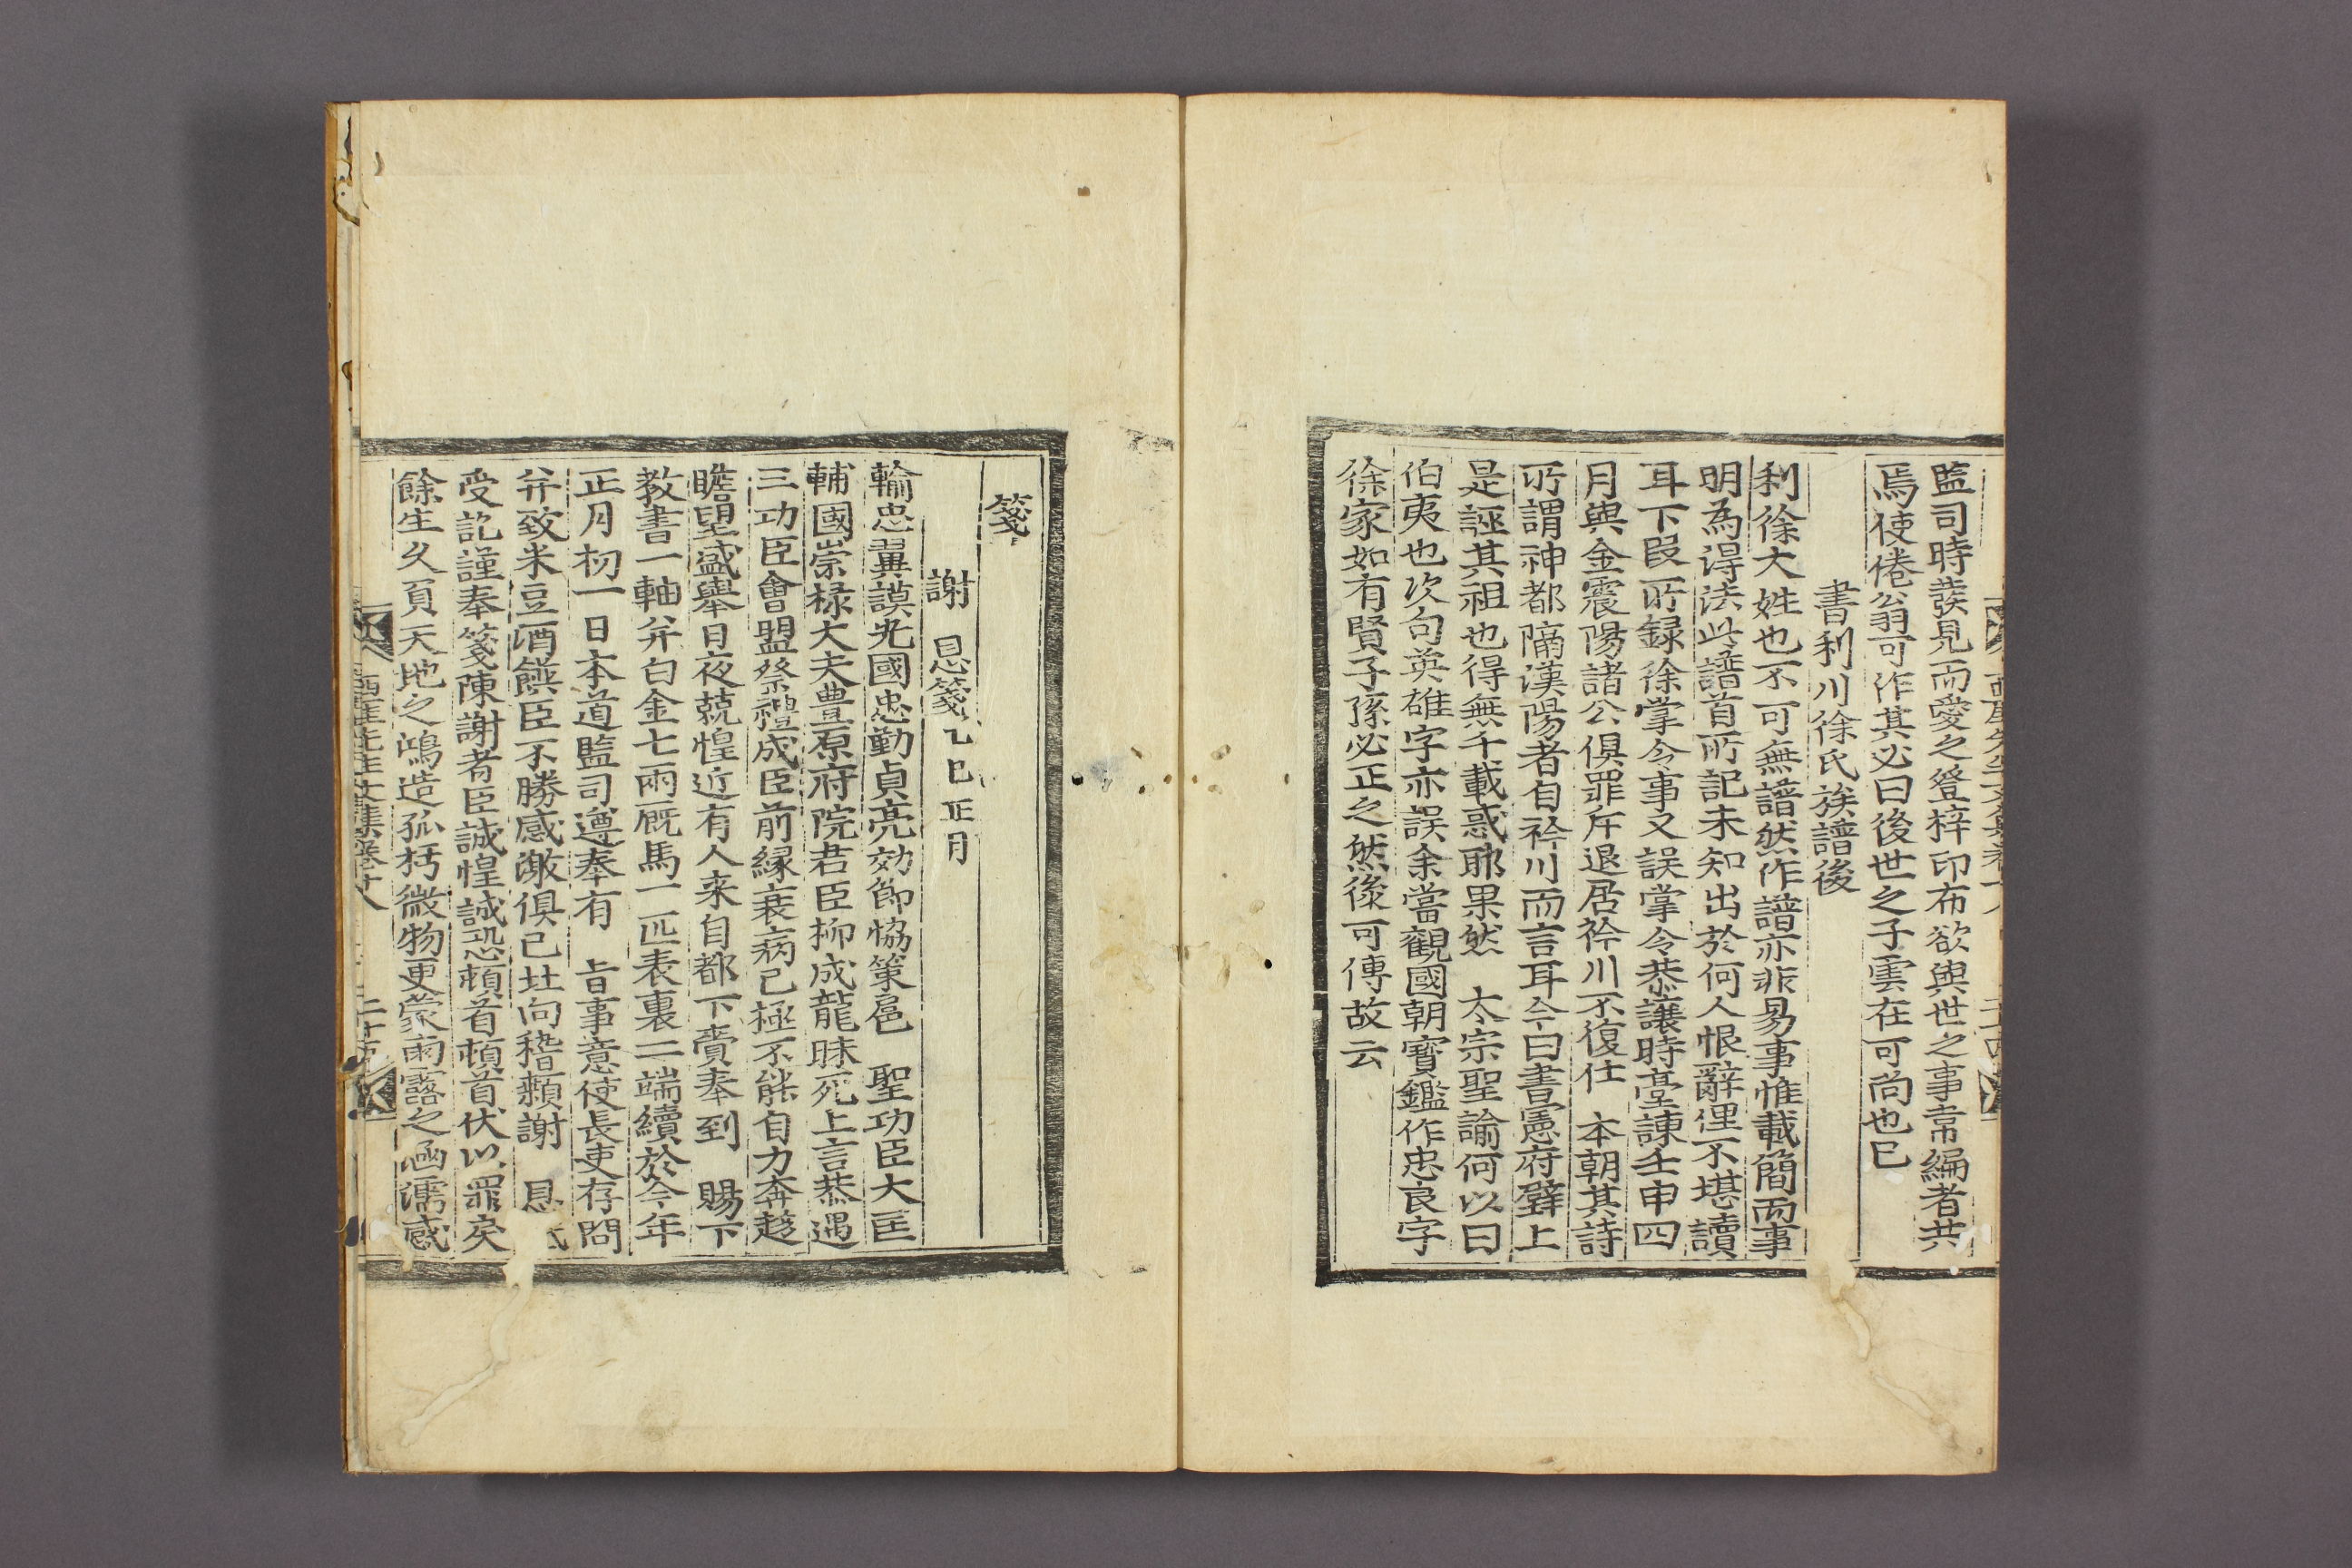 監司時裒見而愛之登梓印布欲與世之事帚編者共
焉使倦翁可作其必曰後世之子雲在可尚也已
書利川徐氏族譜後
利徐大姓也不可無譜然作譜亦非易事惟載簡而事
明為得法此譜首所記未知出於何人恨辭俚不堪讀
耳下段所録徐掌令事又誤掌令恭讓時臺諫壬申四
月與金震陽諸公俱罪斥退居衿川不復仕 本朝其詩
所謂神都隔漢陽者自衿川而言耳今曰書憲府壁上
是誣其祖也得無千載惑耶果然 太宗聖諭何以曰
伯夷也次句英雄字亦誤余當觀國朝寶鑑作忠良字
徐家如有賢子孫必正之然後可傳故云
箋
謝 恩箋乙巳正月
輸忠翼謨光國忠勤貞亮効節恊策扈 聖功臣大匡
輔國崇禄大夫豊原府院君臣柳成龍昧死上言恭遇
三功臣會盟祭禮成臣前縁衰病已極不能自力奔趍
瞻望盛擧日夜兢惶近有人来自都下賫奉到 賜下
教書一軸并白金七兩厩馬一匹表裏二端續於今年
正月初一日本道監司遵奉有 旨事意使長吏存問
并致米豆酒饌臣不勝感激俱已北向稽顙謝 恩祗
受訖謹奉箋陳謝者臣誠惶誠恐頓首頓首伏以罪戾
餘生久負天地之鴻造孤枯微物更蒙雨露之涵濡感
西厓先生文集卷十八